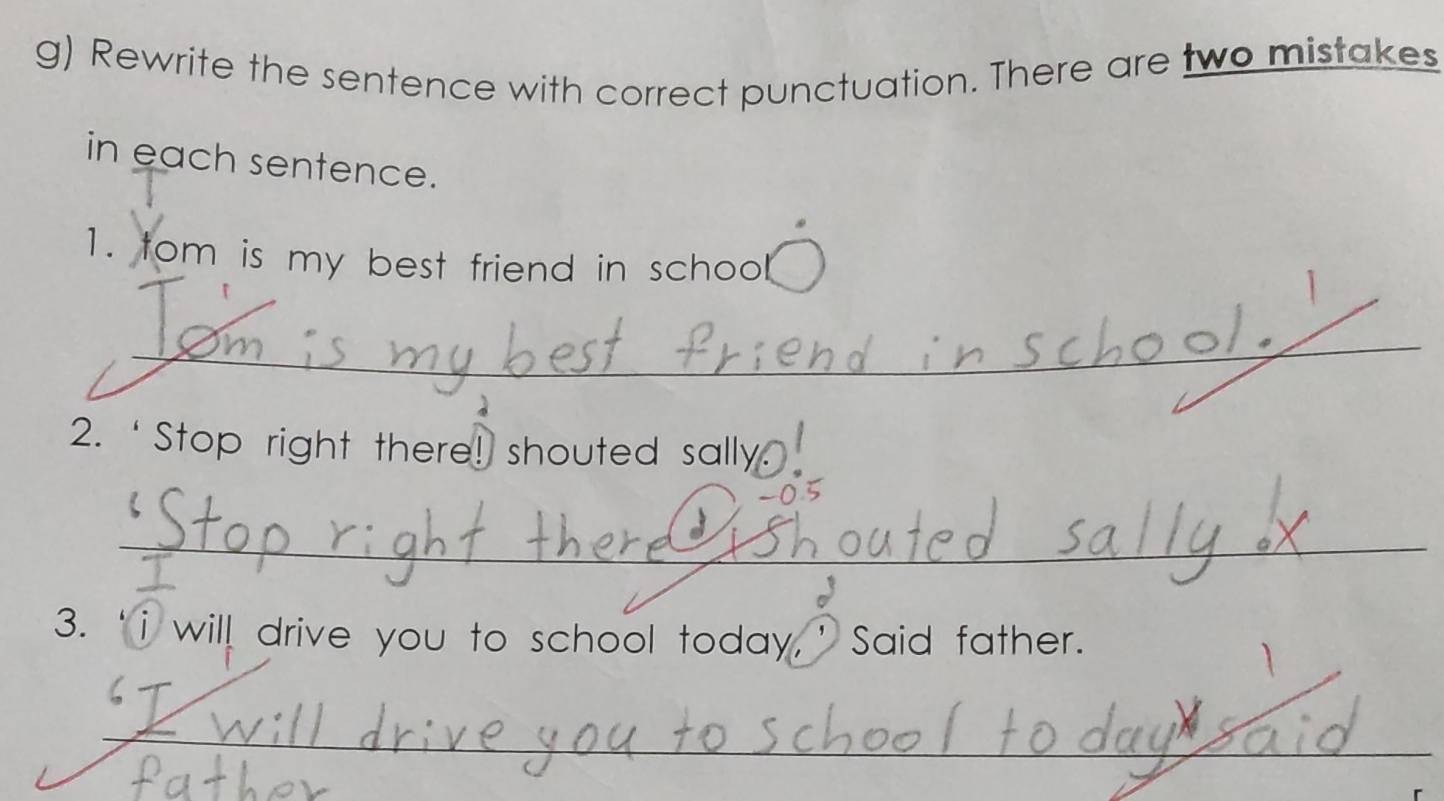 g) Rewrite the sentence with correct punctuation. There are two mistakes
in each sentence.
T
1. tom is my best friend in school .
1 1
Tom is my best friend in school.
2. ' Stop right there! shouted sally. !
-0.5
'Stop right there, shouted sally!
I
3. 'i will drive you to school today, ' Said father.
1 1
'I will drive you to school today said
father